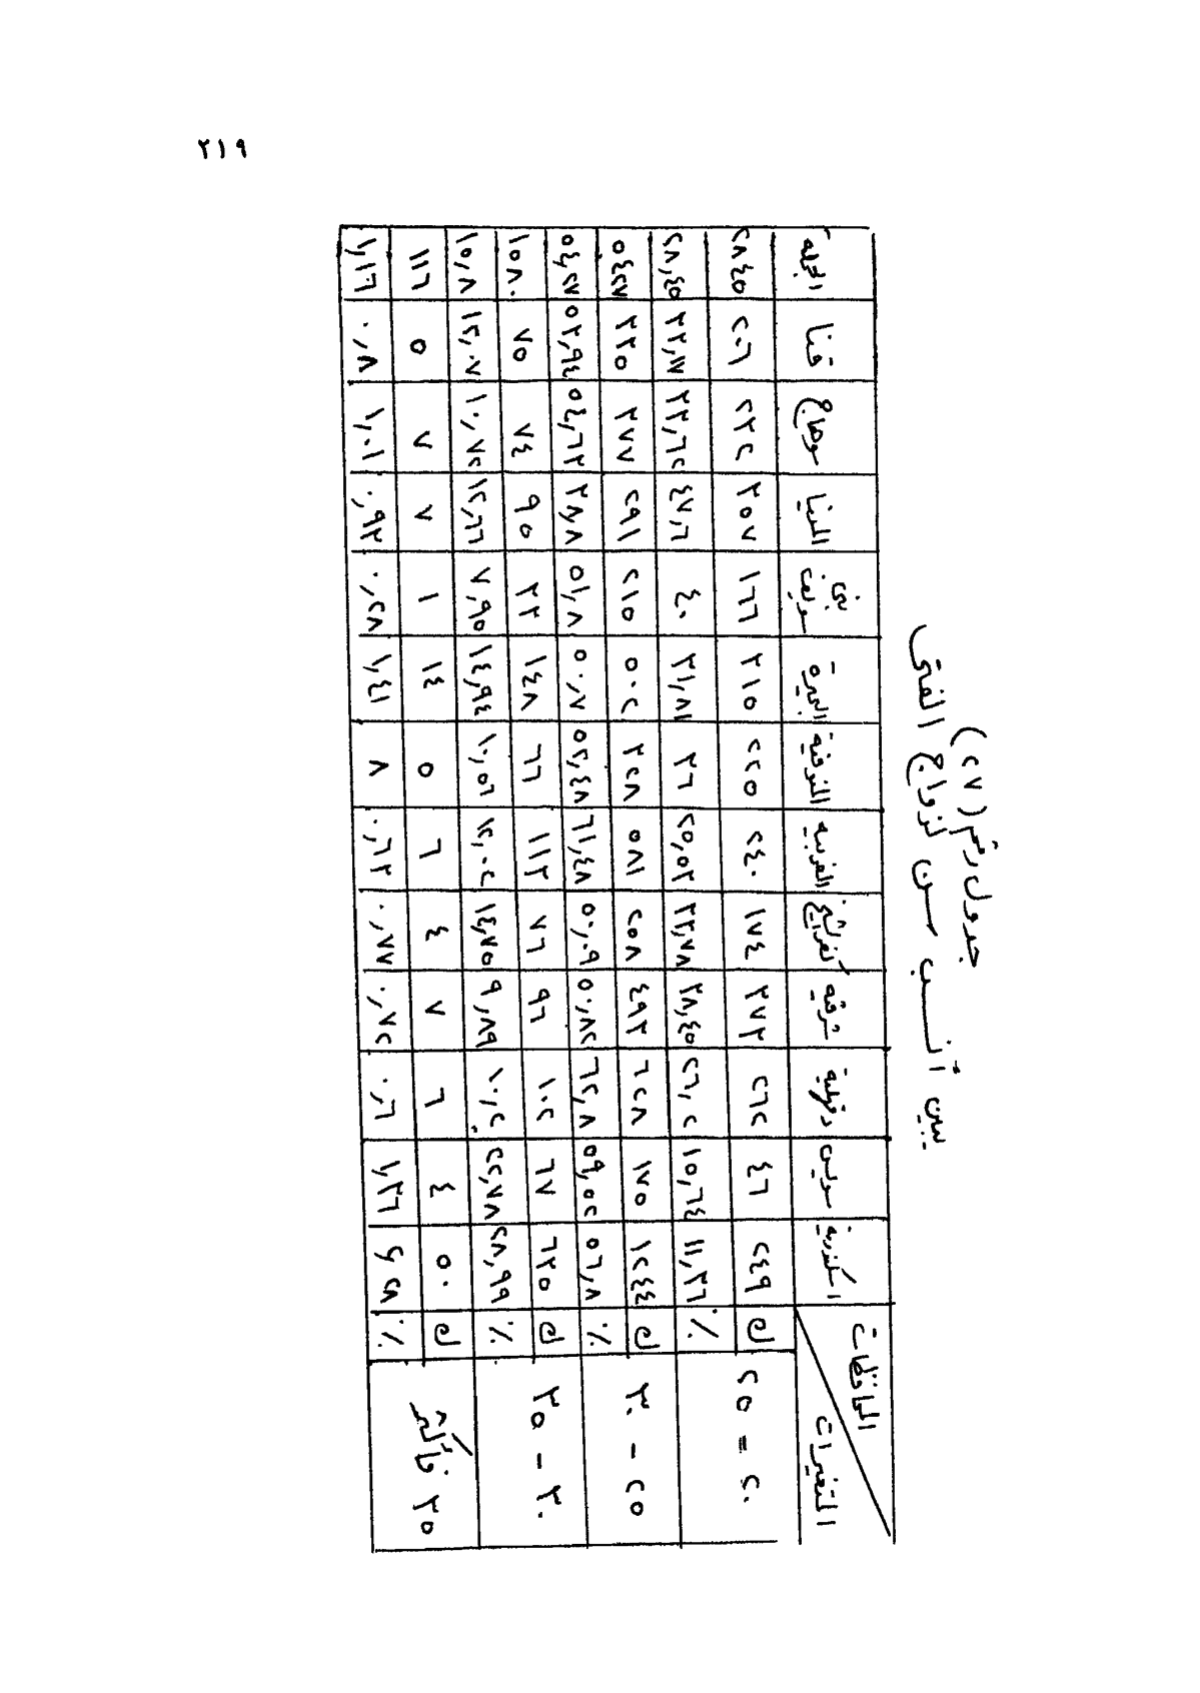 ٢١٩
جدول رقم (٢٧)
يبين أنسب سن لزواج الفتى
المحافظات اسكندرية سويس دقهلية شرقيه كفر الشيخ الغربيه المنوفية البحيرة بنى سويف المنيا سوهاج قنا الجمله
المتغيرات
٢٠ = ٢٥ ك ٢٤٩ ٤٦ ٢٦٢ ٣٧٣ ١٧٤ ٢٤٠ ٢٢٥ ٣١٥ ١٦٦ ٣٥٧ ٢٣٢ ٢٠٦ ٢٨٤٥
٪ ١١,٣٦ ١٥,٦٤ ٢٦,٠٢ ٣٨,٤٥ ٣٣,٧٨ ٢٥,٥٣ ٣٦ ٣١,٨١ ٤٠ ٤٧,٦ ٣٣,٦٢ ٣٣,١٧ ٢٨,٤٥
٢٥ - ٣٠ ك ١٢٤٤ ١٧٥ ٦٢٨ ٤٩٣ ٢٥٨ ٥٨١ ٣٢٨ ٥٠٢ ٢١٥ ٢٩١ ٣٧٧ ٣٣٥ ٥٤٢٧
٪ ٥٦,٨ ٥٩,٥٢ ٦٢,٨ ٥٠,٨٢ ٥٠,٠٩ ٦١,٤٨ ٥٢,٤٨ ٥٠,٧ ٥١,٨ ٣٨,٨ ٥٤,٦٣ ٥٣,٩٤ ٥٤,٢٧
٣٠ - ٣٥ ك ٦٣٥ ٦٧ ١٠٢ ٩٦ ٧٦ ١١٣ ٦٦ ١٤٨ ٣٣ ٩٥ ٧٤ ٧٥ ١٥٨٠
٪ ٢٨,٩٩ ٢٢,٧٨ ١٠,٢ ٩,٨٩ ١٤,٧٥ ١٢,٠٢ ١٠,٥٦ ١٤,٩٤ ٧,٩٥ ١٢,٦٦ ١٠,٧٢ ١٢,٠٧ ١٥,٨
٣٥ فأكثر ك ٥٠ ٤ ٦ ٧ ٤ ٦ ٥ ١٤ ١ ٧ ٧ ٥ ١١٦
٪ ٢,٢٨ ١,٣٦ ٠,٦ ٠,٧٢ ٠,٧٧ ٠,٦٣ ٨ ١,٤١ ٠,٢٨ ٠,٩٣ ١,٠١ ٠,٨ ١,١٦